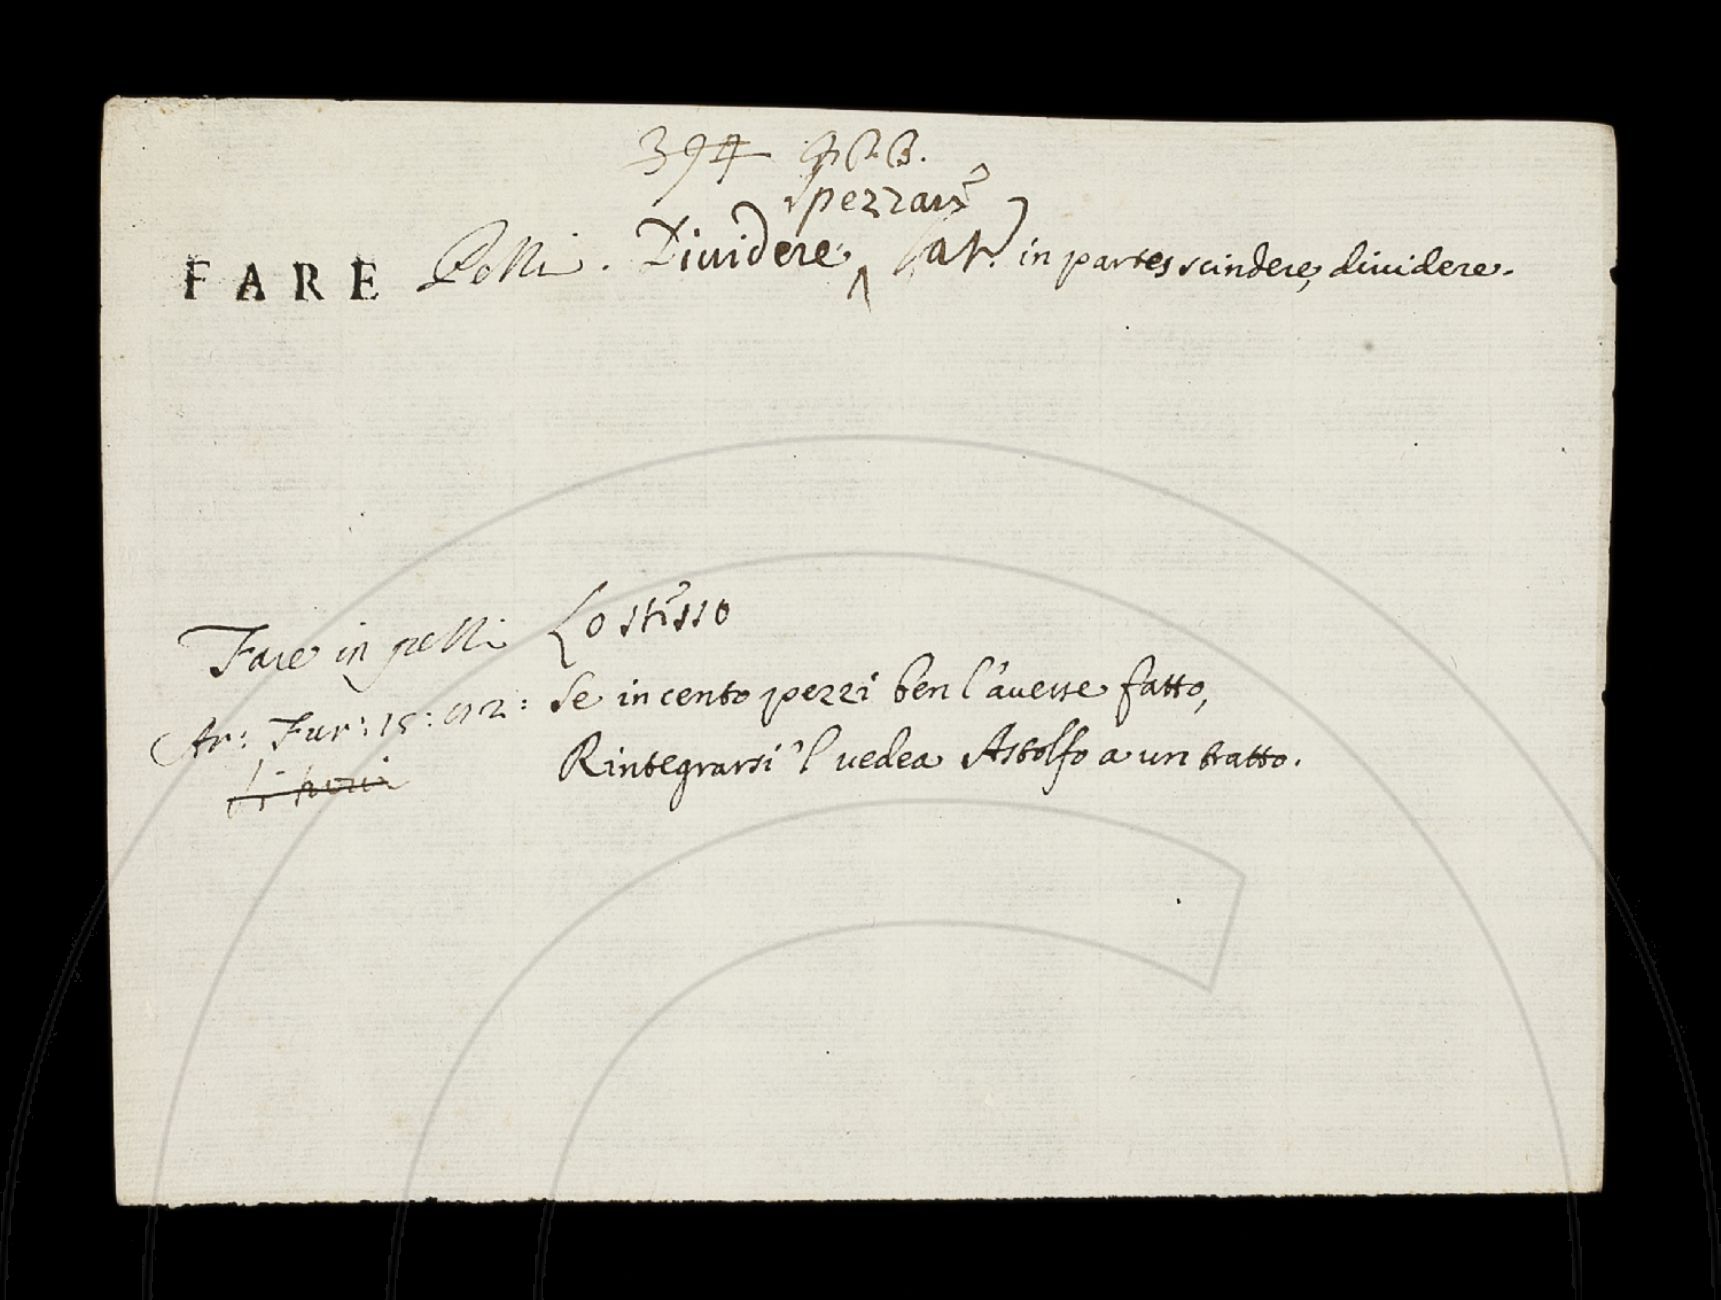 394
Spezzare
FARE Pezzi. Dividere, ^ Lat. in partes scindere, dividere.
Fare in pezzi Lo stesso
Ar: Fur: 15: 82: Se in cento pezzi ben l'avesse fatto,
Rintegrarsi 'l vedea Astolfo a un tratto.